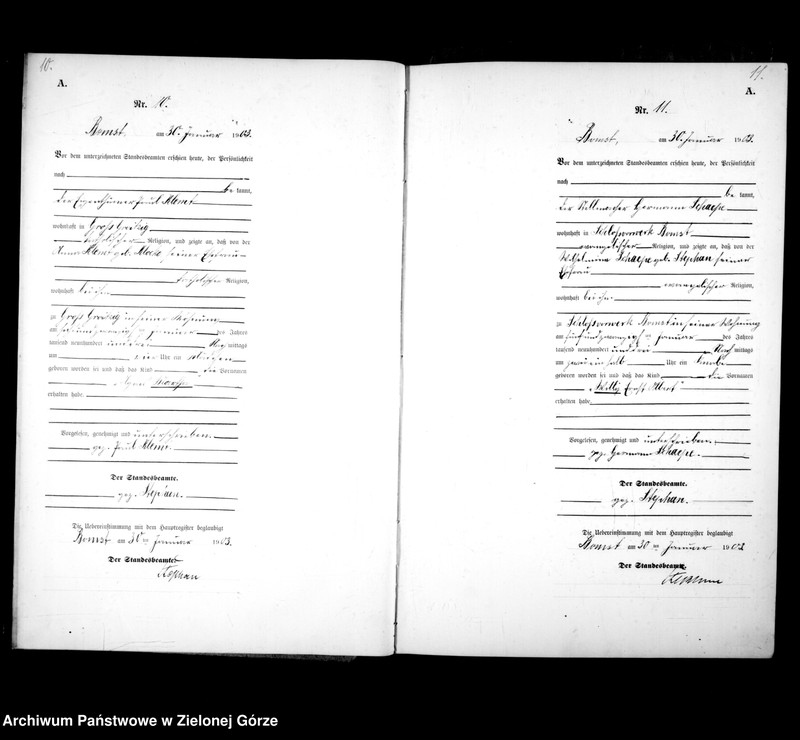 10.
A.
Nr. 10.
Bomst am 30. Januar 1903.
Vor dem unterzeichneten Standesbeamten erschien heute, der Persönlichkeit
nach
bekannt,
der Eigenthümer Paul Klemt
wohnhaft in Groß Greitzig
katholischer Religion, und zeigte an, daß von der
Anna Klemt geb. seiner Ehefrau
katholischer Religion,
wohnhaft bei ihm
zu Groß Greitzig in seiner Wohnung
am Januar des Jahres
tausend neunhundert und drei Nachmittags
um vier Uhr ein Mädchen
geboren worden sei und daß das Kind die Vornamen
Agnes
erhalten habe.
Vorgelesen, genehmigt und unterschrieben.
gez. Paul Klemt.
Der Standesbeamte.
gez. Stephan.
Die Uebereinstimmung mit dem Hauptregister beglaubigt
Bomst am 30ten Januar 1903.
Der Standesbeamte
Stephan
11.
A.
Nr. 11.
Bomst, am 30. Januar 1903.
Vor dem unterzeichneten Standesbeamten erschien heute, der Persönlichkeit
nach
bekannt,
der Stellmacher Hermann Schaefe
wohnhaft in Schlossvorwerk Bomst
evangelischer Religion, und zeigte an, daß von der
Wilhelmine Schaefe geb. Stephan seiner
Ehefrau
evangelischer Religion,
wohnhaft bei ihm
zu Schlossvorwerk Bomst in seiner Wohnung
am fünfundzwanzigsten Januar des Jahres
tausend neunhundert und drei Nachmittags
um zwei einhalb Uhr ein Knabe
geboren worden sei und daß das Kind die Vornamen
„Willy Ernst Albert"
erhalten habe
Vorgelesen, genehmigt und unterschrieben.
gez. Hermann Schaefe.
Der Standesbeamte.
gez. Stephan.
Die Uebereinstimmung mit dem Hauptregister beglaubigt
Bomst am 30ten Januar 1903
Der Standesbeamte
Stephan
Archiwum Państwowe w Zielonej Górze